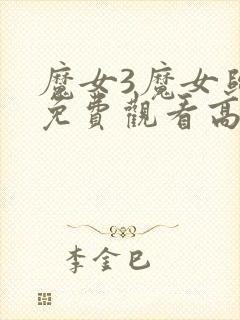 魔女3魔女
免費觀看高
李金巳